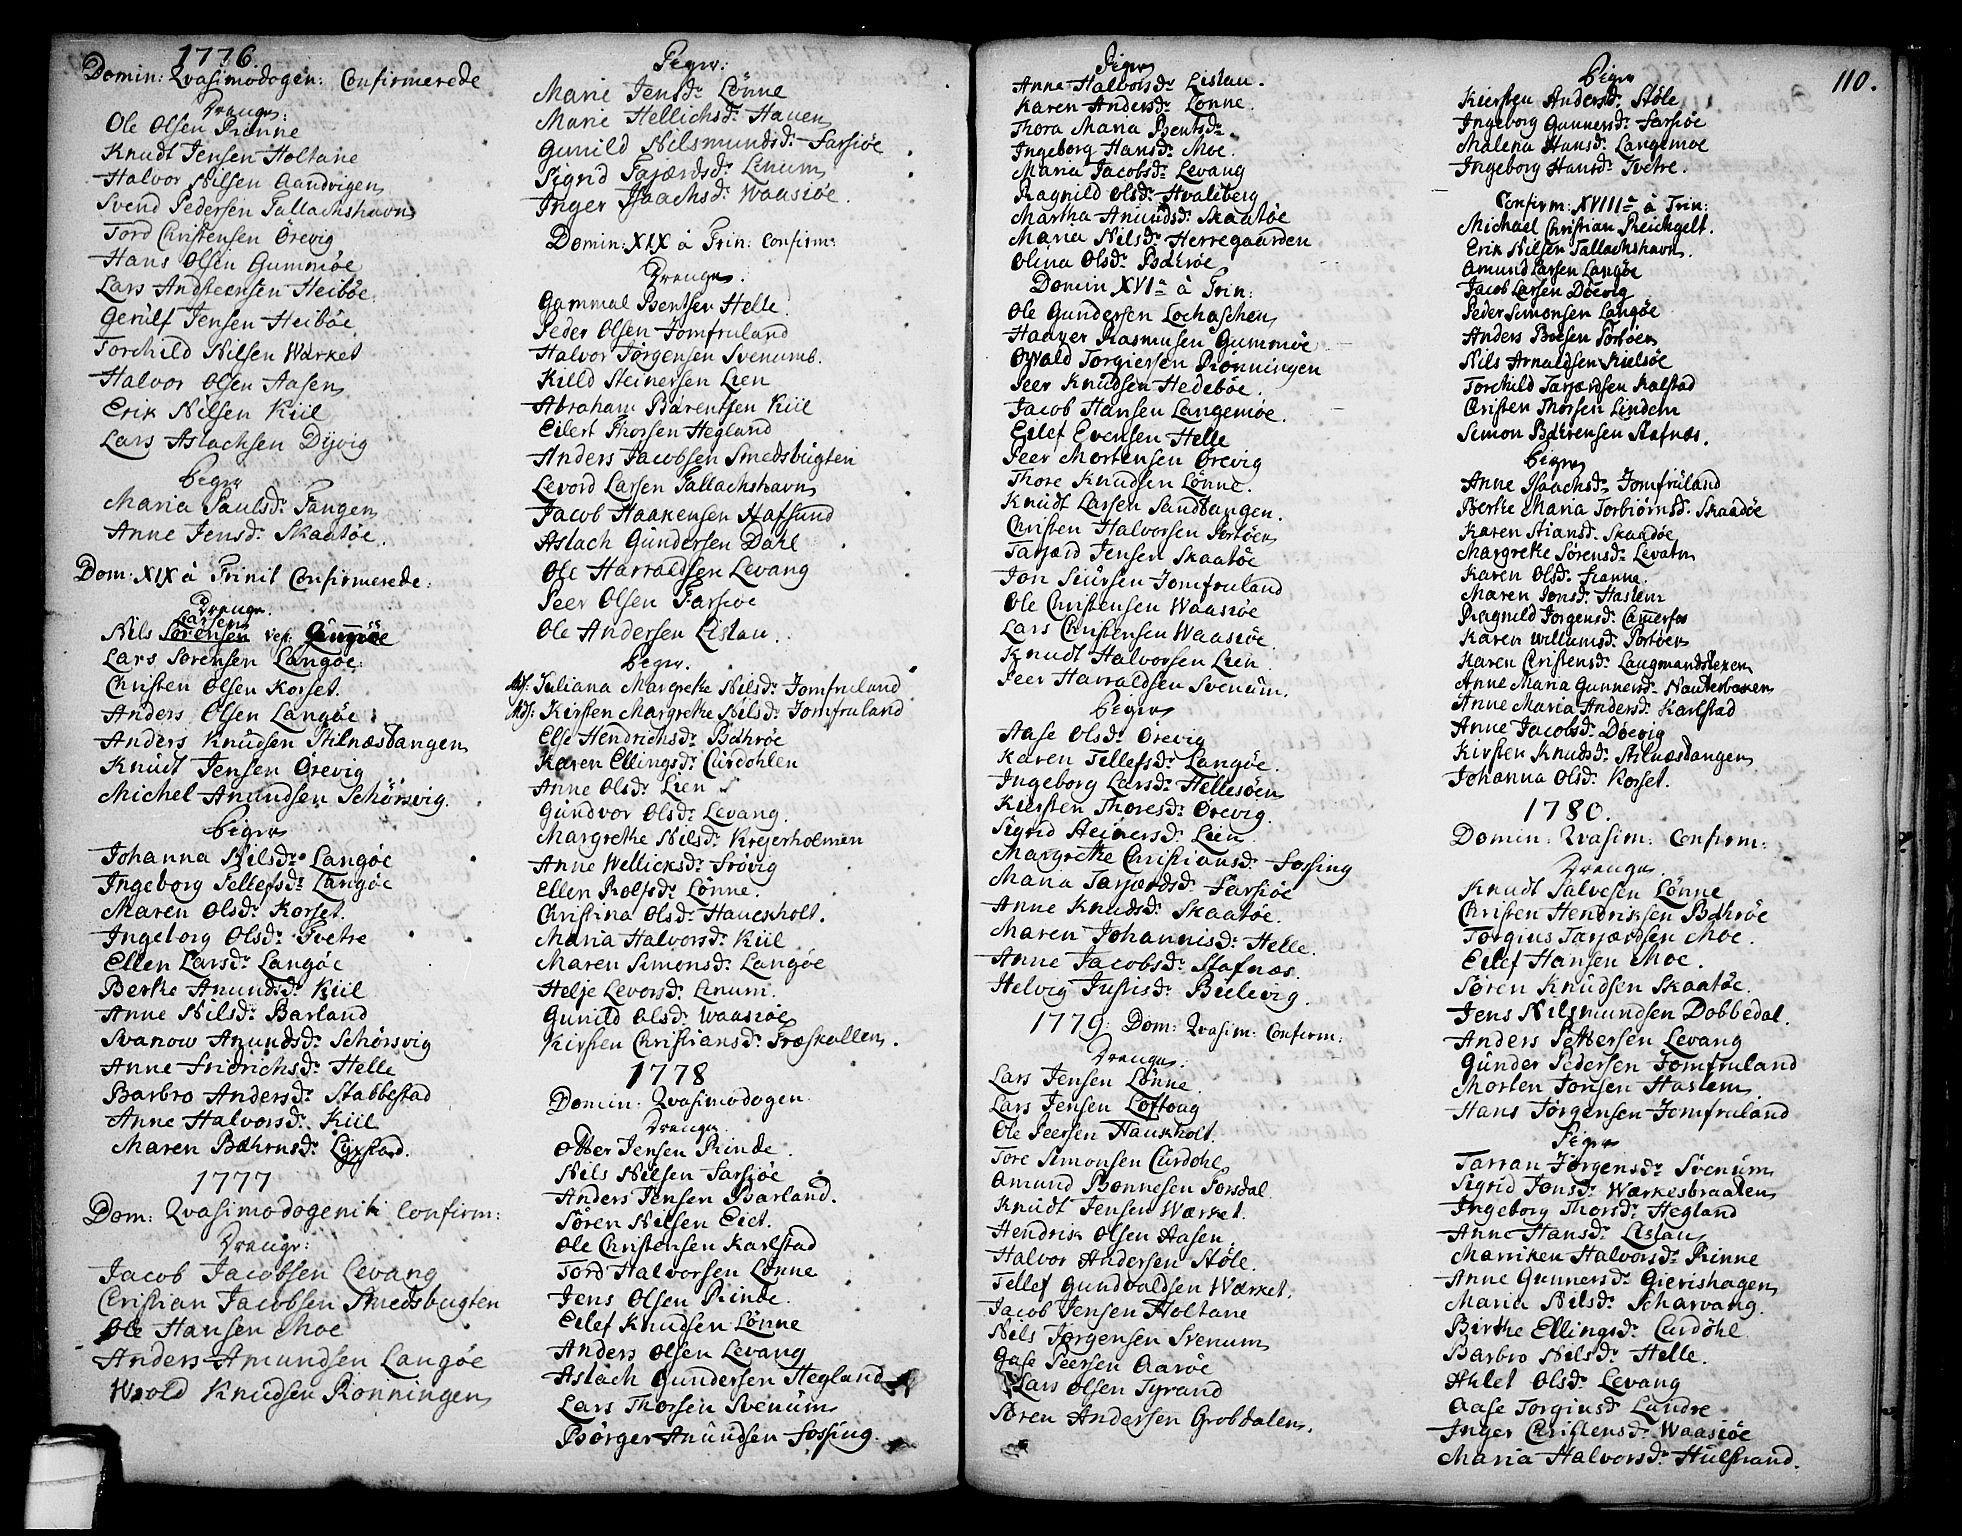 1776.
Domin: Qvasimodogen: Confirmerede
Drenge:
Ole Olsen Rinne
Knudt Jensen Holtane
Halvor Nilsen Aandvigen
Svend Pedersen Tallachshavn
Tord Christensen Ørevig
Hans Olsen Gummöe
Lars Andsteensen Heiböe
Gerulf Jensen Heiböe
Torchild Nilsen Wærket
Halvor Olsen Aasen
Erik Nilsen Kiil
Lars Aslachsen Dÿvig
Piger
Maria Paulsdr. Tangen
Anne Jensdr. Skaatöe.
Dom: XIX à Trinit Confirmerede:
Drenge.
Larsen
Nils Sörensen vest Gumöe
Lars Sörensen Langöe.
Christen Olsen Korset.
Anders Olsen Langöe.
Anders Knudsen Stilnæstangen
Knudt Jensen Ørevig
Michel Anundsen Schörsvig.
Piger
Johanna Nilsdr. Langöe
Ingeborg Tellefsdr. Langöe
Maren Olsdr. Korset.
Ingeborg Olsdr. Tvetre
Ellen Larsdr. Langöe
Berthe Anundsdr. Kiil
Anne Nilsdr. Barland
Svanow Anundsdr. Schörsvig
Anne Fridrichsdr. Helle
Barbro Andersdr. Stabbestad
Anne Halvorsdr. Kiil
Maren Bæhrnsdr. Lÿxstad.
1777
Dom: Qvasimodogeniti Confirm:
Drenge:
Jacob Jacobsen Levang
Christian Jacobsen Smedsbugten
Ole Hansen Moe
Anders Amundsen Langöe
Wrold Knudsen Rönningen
Piger:
Marie Jensdr. Lönne
Marie Hellichsdr. Haven
Gunild Nilsmundsdr. Farsiöe
Sigrid Tajærdsdr. Lenum
Inger Isaachsdr. Waasiöe.
Domin: XIX à Trin: Confirm:
Drenge.
Gammal Bentsen Helle.
Peder Olsen Jomfruland
Halvor Jörgensen Svenumb.
Killd Steinersen Lien
Abraham Barentsen Kiil
Eilert Thorsen Hegland
Anders Jacobsen Smedsbugten
Levord Larsen Tallachshavn
Jacob Haakensen Hafsund
Aslach Gundersen Dahl
Ole Harraldsen Levang
Peer Olsen Farsiöe
Ole Andersen Lislau.
Piger.
Juliana Margrethe Nilsdr. Jomfruland
Kirsten Margrethe Nilsdr. Jomfruland
Else Hendrichsdr. Bæhröe
Karen Ellingsdr. Curdohlen
Anne Olsdr. Lien
Gundvor Olsdr. Levang.
Margrethe Nilsdr. Kregerholmen
Anne Wellicksdr. Fröviig
Ellen Rolfsdr. Lönne.
Christina Olsdr. Hauckholt.
Maria Halvorsdr. Kiil
Maren Simonsdr. Langöe
Helje Levorsdr. Lenum.
Gunild Olsdr. Waasiöe
Kirsten Christiansdr. Træskallen.
1778
Domin: Qvasimodogen.
Drenge
Otter Jensen Rinde.
Nils Nielsen Farsiöe
Anders Jensen Barland.
Sören Nilsen Eiet.
Ole Christensen Karlstad
Tord Halvorsen Lönne
Jens Olsen Rinde.
Eilef Knudsen Lönne
Anders Olsen Levang
Aslach Gundersen Hegland
Lars Thorsen Svenum
Börger Anundsen Fossing.
Piger
Anne Halvorsdr. Lislau.
Karen Andersdr. Lönne.
Thora Maria Bentsdr.
Ingeborg Hansdr. Moe.
Maria Jacobsdr. Levang
Ragnild Olsdr. Hvaleberg
Martha Anundsdr. Skaatöe
Maria Nilsdr. Herregaarden
Olina Olsdr. Bæhröe
Domin XVIa à Trin:
Ole Gundersen Lochaschen
Haaver Rasmusen Gummöe
Oswald Torgiersen Rönningen
Peer Knudsen Hedeböe.
Jacob Hansen Langemöe.
Eilef Evensen Helle
Peer Mortensen Ørevig
Thore Knudsen Lönne.
Knudt Larsen Sandtangen.
Christen Halvorsen Portöen
Tarjærd Jensen Skaatöe
Jon Siursen Jomfruland
Ole Christensen Waasiöe
Lars Christensen Waasiöe.
Knudt Halvorsen Lien
Peer Harraldsen Svenum.
Piger
Aase Olsdr. Ørevig
Karen Tellefsdr. Langöe.
Ingeborg Larsdr. Hellesöen
Kiersten Thoresdr. Ørevig.
Sigrid Steinersdr. Lien
Margrethe Christiansdr. Fossing
Maria Tarjærdsdr. Farsiöe
Anne Knudsdr. Skaatöe.
Maren Johannisdr. Helle.
Anne Jacobsdr. Stafnæs.
Helvig Justisdr. Bielevig.
1779. Dom: Qvasim: Confirm:
Drenge:
Lars Jensen Lönne.
Lars Jensen Loftvaig
Ole Peersen Hauskholt.
Tore Simonsen Curdohl
Amund Bonnesen Forsdal
Knudt Jensen Wærket.
Hendrik Olsen Aasen.
Halvor Andersen Støle.
Tellef Gundvaldsen Wærket.
Jacob Jensen Holtane
Nils Jörgensen Svenum
Gase Peersen Aaröe
Lars Olsen Tyrand
Sören Andersen Grobdalen.
110.
Piger
Kiersten Andersdr. Støle
Ingeborg Gunnersdr. Farsiöe
Malena Hansdr. Langemoe
Ingeborg Hansdr. Tvetre.
Confirm: XVIIIa à Trin:
Michael Christian Reichgelt.
Erik Nilsen Tallachshavn.
Amund Larsen Langöe
Jacob Larsen Döevig
Peder Simonsen Langöe
Anders Boesen Portöen
Nils Arnoldsen Kielsöe
Torchild Tarjærdsen Kalstad
Christen Thorsen Lindem
Simon Bæhrensen Stafnæs.
Piger
Anne Isaachsdr. Jomfruland
Berthe Maria Torbiörnsdr. Skaadöe
Karen Stiansdr. Skaadöe
Margrethe Sörensdr. Levatn
Karen Olsdr. Hanne.
Maren Jonsdr. Haslem
Ragnild Jorgensdr. Camerfos
Karen Willumsdr. Portöen
Karen Christensdr. Laugmandslexen
Anne Maria Gunnersdr. Nauterboxen
Anne Maria Andersdr. Karlstad
Anne Jacobsdr. Döevig
Kirsten Knudsdr. Stilnæstangen
Johanna Olsdr. Korset.
1780.
Domin: Qvasim: Confirm:
Drenge.
Knudt Salvesen Lönne
Christen Hendriksen Bæhröe
Torgius Tarjærdsen Moe.
Eilef Hansen Moe.
Sören Knudsen Skaatöe.
Jens Nilsmundsen Dobbedal.
Anders Pettersen Levang
Gunder Pedersen Jomfruland
Morten Jonsen Haslem
Hans Jörgensen Jomfruland
Piger
Tarran Jörgensdr. Svenum
Sigrid Jonsdr. Wærkesbraaten
Ingeborg Thorsdr. Hegland
Anne Hansdr. Lislau
Marriken Halvorsdr. Rinne
Anne Gunnersdr. Gierishagen
Maria Nilsdr. Scharvang.
Birthe Ellingsdr. Curdöhl
Barbro Nilsdr. Helle.
Ahlet Olsdr. Levang
Aase Torgiusdr. Lundre
Inger Christensdr. Waasiöe
Maria Halvorsdr. Hulstrand.